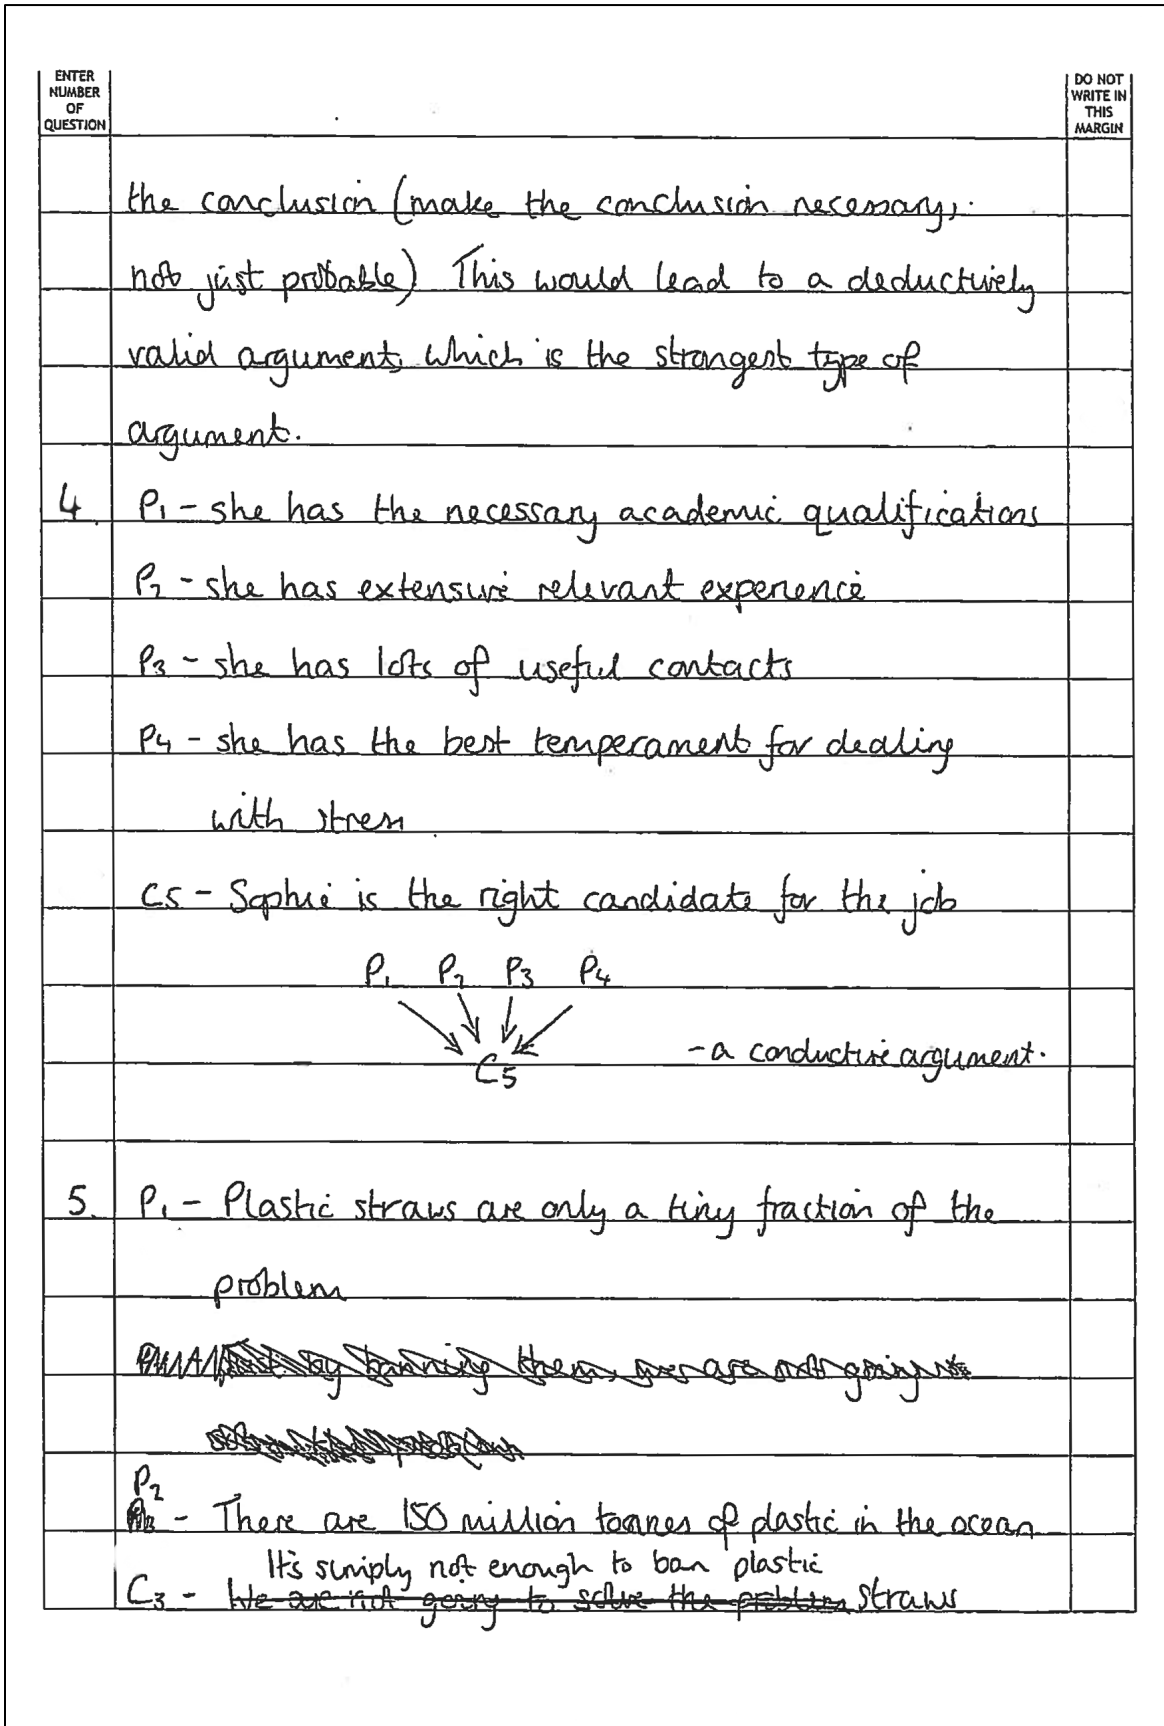 ENTER
NUMBER
OF
QUESTION
DO NOT
WRITE IN
THIS
MARGIN
the conclusion (make the conclusion necessary,
not just probable) This would lead to a deductively
valid argument, which is the strongest type of
argument.
4 P1 - she has the necessary academic qualifications
P2 - she has extensive relevant experience
P3 - she has lots of useful contacts
P4 - she has the best temperament for dealing
with stress
C5 - Sophie is the right candidate for the job
P1 P2 P3 P4
C5 - a conductive argument.
5. P1 - Plastic straws are only a tiny fraction of the
problem
by banning them, are not going
P2
- There are 150 million tonnes of plastic in the ocean
It's simply not enough to ban plastic
C3 - We are not going to solve the problem straws